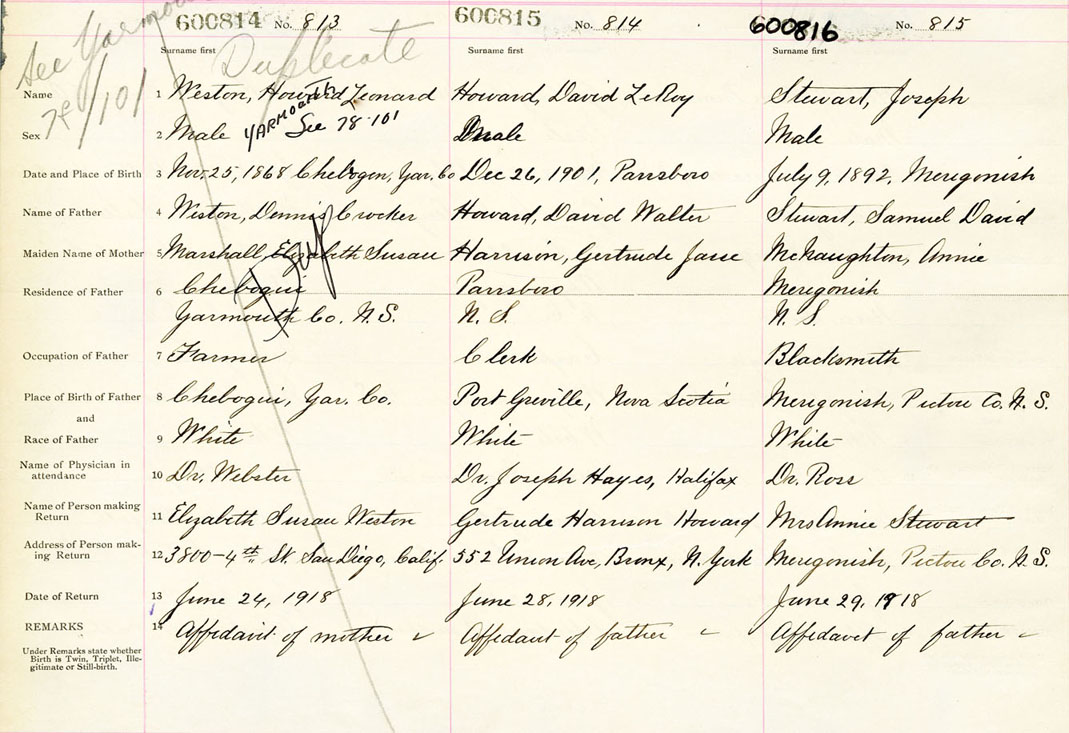 See Yarmouth
78/101
Duplicate
600814 No. 813
600815 No. 814
600816 No. 815
Surname first Surname first Surname first
Name 1 Weston, Howard Leonard Howard, David LeRoy Stewart, Joseph
Sex 2 Male YARMOUTH See 78-101 Male Male
Date and Place of Birth 3 Nov. 25, 1868 Chebogon, Yar. Co Dec 26, 1901, Parrsboro July 9, 1892, Meregonish
Name of Father 4 Weston, Dennis Crocker Howard, David Walter Stewart, Samuel David
Maiden Name of Mother 5 Marshall, Elizabeth Susan Harrison, Gertrude Jane McNaughton, Annie
Dup
Residence of Father 6 Chebogui Parrsboro Meregonish
Yarmouth Co. N.S. N. S. N. S.
Occupation of Father 7 Farmer Clerk Blacksmith
Place of Birth of Father 8 Chebogui, Yar. Co. Port Greville, Nova Scotia Meregonish, Pictou Co. N. S.
and
Race of Father 9 White White White
Name of Physician in
attendance 10 Dr. Webster Dr. Joseph Hayes, Halifax Dr. Ross
Name of Person making
Return 11 Elizabeth Susan Weston Gertrude Harrison Howard Mrs Annie Stewart
Address of Person mak-
ing Return 12 3800-4th St. San Diego, Calif. 552 Union Ave, Bronx, N. York Meregonish, Pictou Co. N. S.
Date of Return 13 June 24, 1918 June 28, 1918 June 29, 1918
REMARKS 14 Affidavit of mother Affidavit of father Affidavit of father
Under Remarks state whether
Birth is Twin, Triplet, Ille-
gitimate or Still-birth.